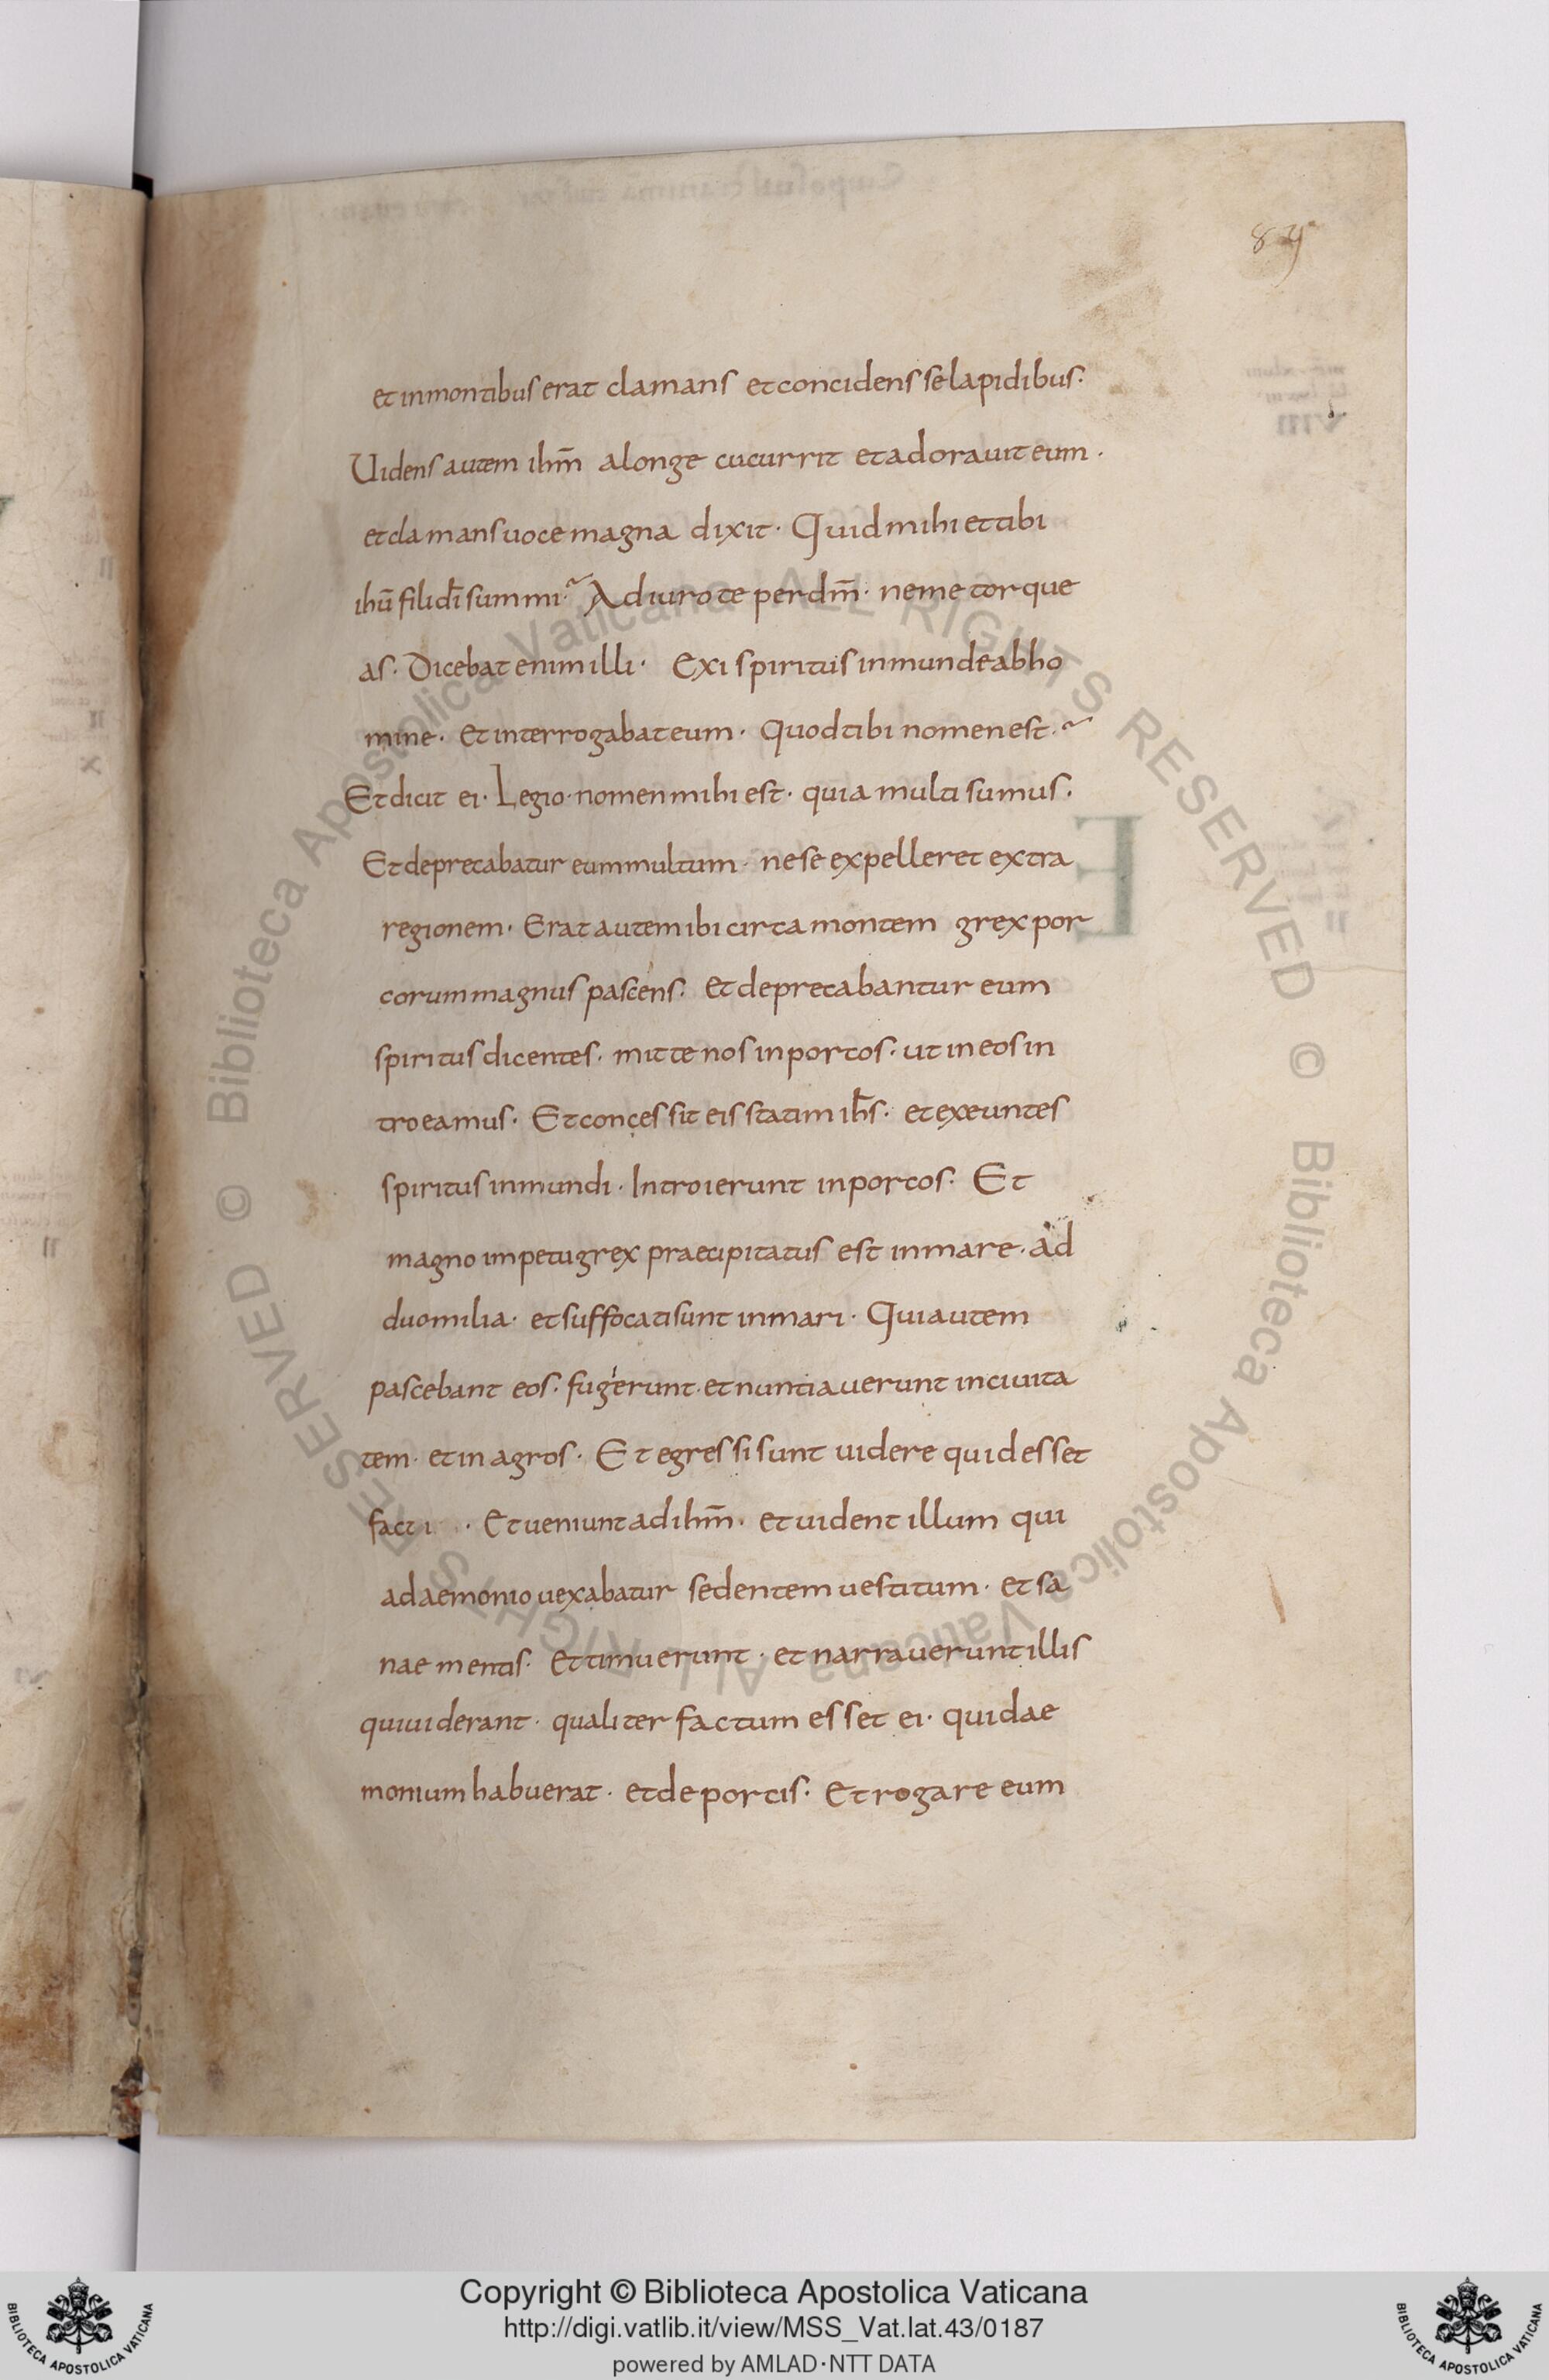 89
et in montibus erat clamans et concidens se lapidibus·
Uidens autem ihm̄ a longe cucurrit et adorauit eum·
et clamans uoce magna dixit· Quid mihi et tibi
ihū fili dī summi·~ Adiuro te per dm̄· ne me torque
as· Dicebat enim illi· Exi spiritus inmunde ab ho
mine· Et interrogabat eum· Quod tibi nomen est·~
Et dicit ei· Legio· nomen mihi est· quia multi sumus·
Et deprecabatur eum multum· ne se expelleret extra
regionem· Erat autem ibi circa montem grex por
corum magnus pascens· Et deprecabantur eum
spiritus dicentes· mitte nos in porcos· ut in eos in
troeamus· Et concessit eis statim ih̄s· et exeuntes
spiritus inmundi· Introierunt in porcos· Et
magno impetu grex praecipitatus est in mare· ad
duo milia· et suffocati sunt in mari· Qui autem
pascebant eos· fugerunt· et nuntiauerunt in ciuita
tem· et in agros· Et egressi sunt uidere quid esset
facti · Et ueniunt ad ihm̄· et uident illum qui
a daemonio uexabatur sedentem uestitum· et sa
nae mentis· Et timuerunt· et narrauerunt illis
qui uiderant· qualiter factum esset ei· qui dae
monium habuerat· et de porcis· Et rogare eum
© Biblioteca Apostolica Vaticana ALL RIGHTS RESERVED © Biblioteca Apostolica Vaticana ALL RIGHTS RESERVED
BIBLIOTECA APOSTOLICA VATICANA
Copyright © Biblioteca Apostolica Vaticana
http://digi.vatlib.it/view/MSS_Vat.lat.43/0187
powered by AMLAD·NTT DATA
BIBLIOTECA APOSTOLICA VATICANA